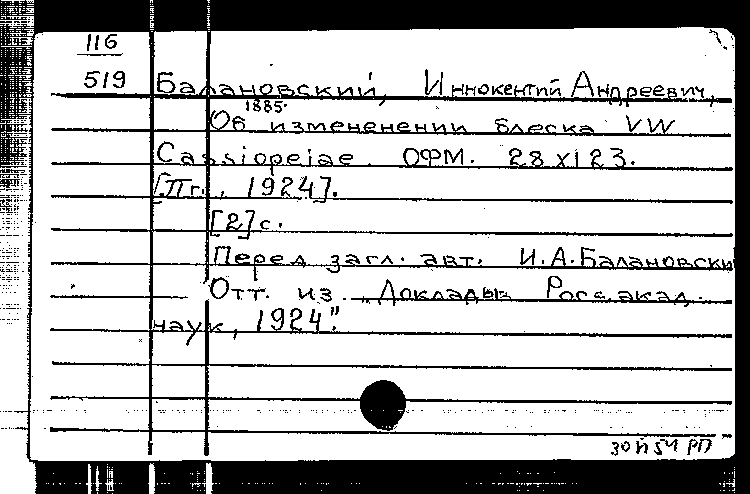 116
519 Балановский, Иннокентий Андреевич,
1885.
Об изменении блеска VW
Cassiopeiae. ОФМ. 28 XI 23.
[Пг., 1924].
[2] с.
Перед загл. авт. И.А.Балановски
Отт. из „Доклады Росс. акад.
наук, 1924".